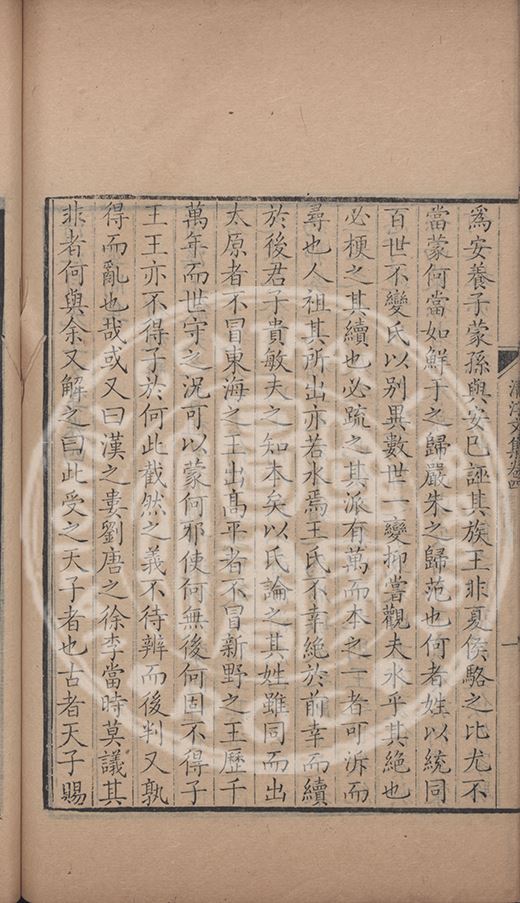 爲安養子蒙孫與安巳誣其族王非夏侯駱之比尤不
當蒙何當如鮮于之歸嚴朱之歸范也何者姓以統同
百世不變氏以別異數世一變抑嘗觀夫水乎其絶也
必梗之其續也必疏之其派有萬而本之一者可泝而
尋也人祖其所出亦若水焉王氏不幸絶於前幸而續
於後君子貴敏夫之知本矣以氏論之其姓雖同而出
太原者不冒東海之王出髙平者不冒新野之王歷千
萬年而世守之況可以蒙何邪使何無後何固不得子
王王亦不得子於何此截然之義不待辨而後判又孰
得而亂也哉或又曰漢之婁劉唐之徐李當時莫議其
非者何與余又解之曰此受之天子者也古者天子賜
清江文集卷四
一